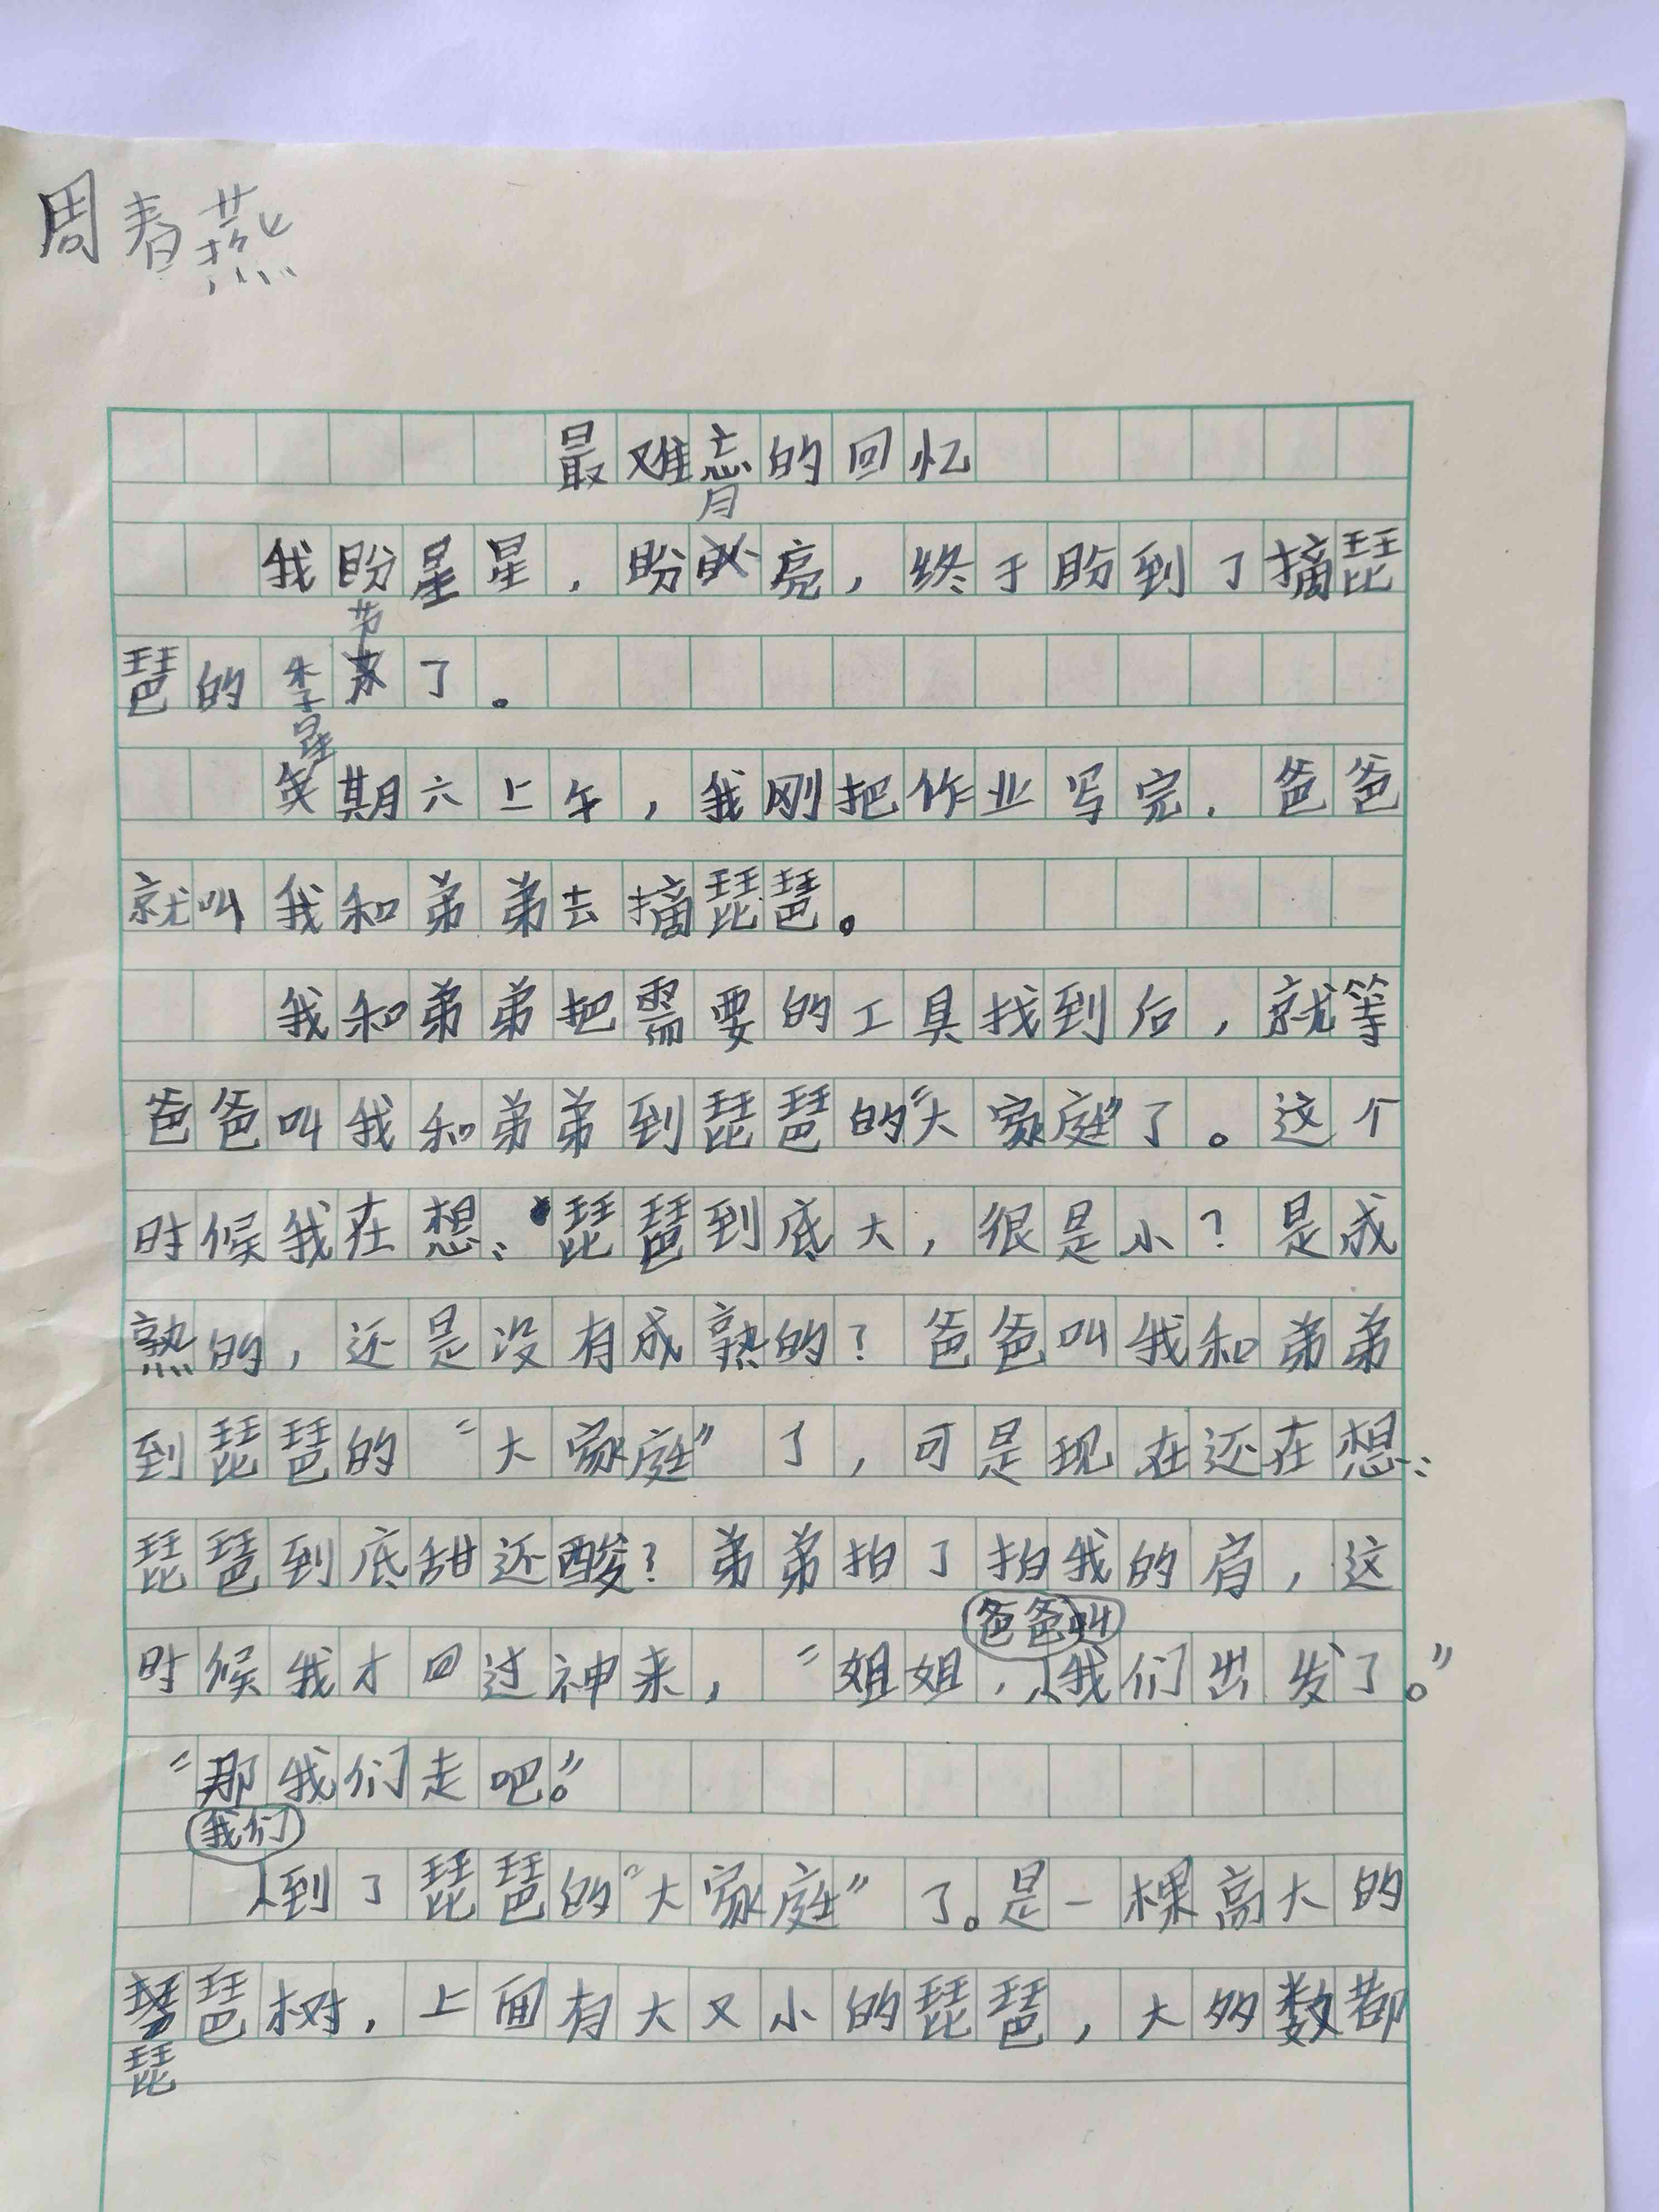 周春燕
最难忘的回忆
我盼星星，盼月亮，终于盼到了摘琵
琶的季节了。
星期六上午，我刚把作业写完，爸爸
就叫我和弟弟去摘琵琶。
我和弟弟把需要的工具找到后，就等
爸爸叫我和弟弟到琵琶的“大家庭”了。这个
时候我在想：琵琶到底大，很是小？是成
熟的，还是没有成熟的？爸爸叫我和弟弟
到琵琶的“大家庭”了，可是现在还在想：
琵琶到底甜还酸？弟弟拍了拍我的肩，这
时候我才回过神来，“姐姐，爸爸叫我们出发了。”
“那我们走吧。”
我们到了琵琶的“大家庭”了。是一棵高大的
琵琶树，上面有大又小的琵琶，大多数都